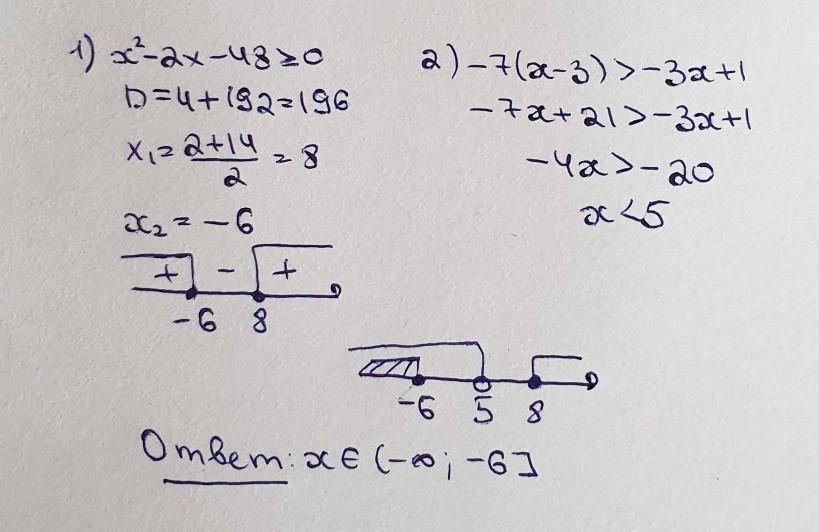 1) x²-2x-48≥0
D=4+192=196
x₁=2+14/2=8
x₂=-6
+ - +
-6 8
2) -7(x-3)>-3x+1
-7x+21>-3x+1
-4x>-20
x<5
-6 5 8
Ответ: x∈(-∞;-6]